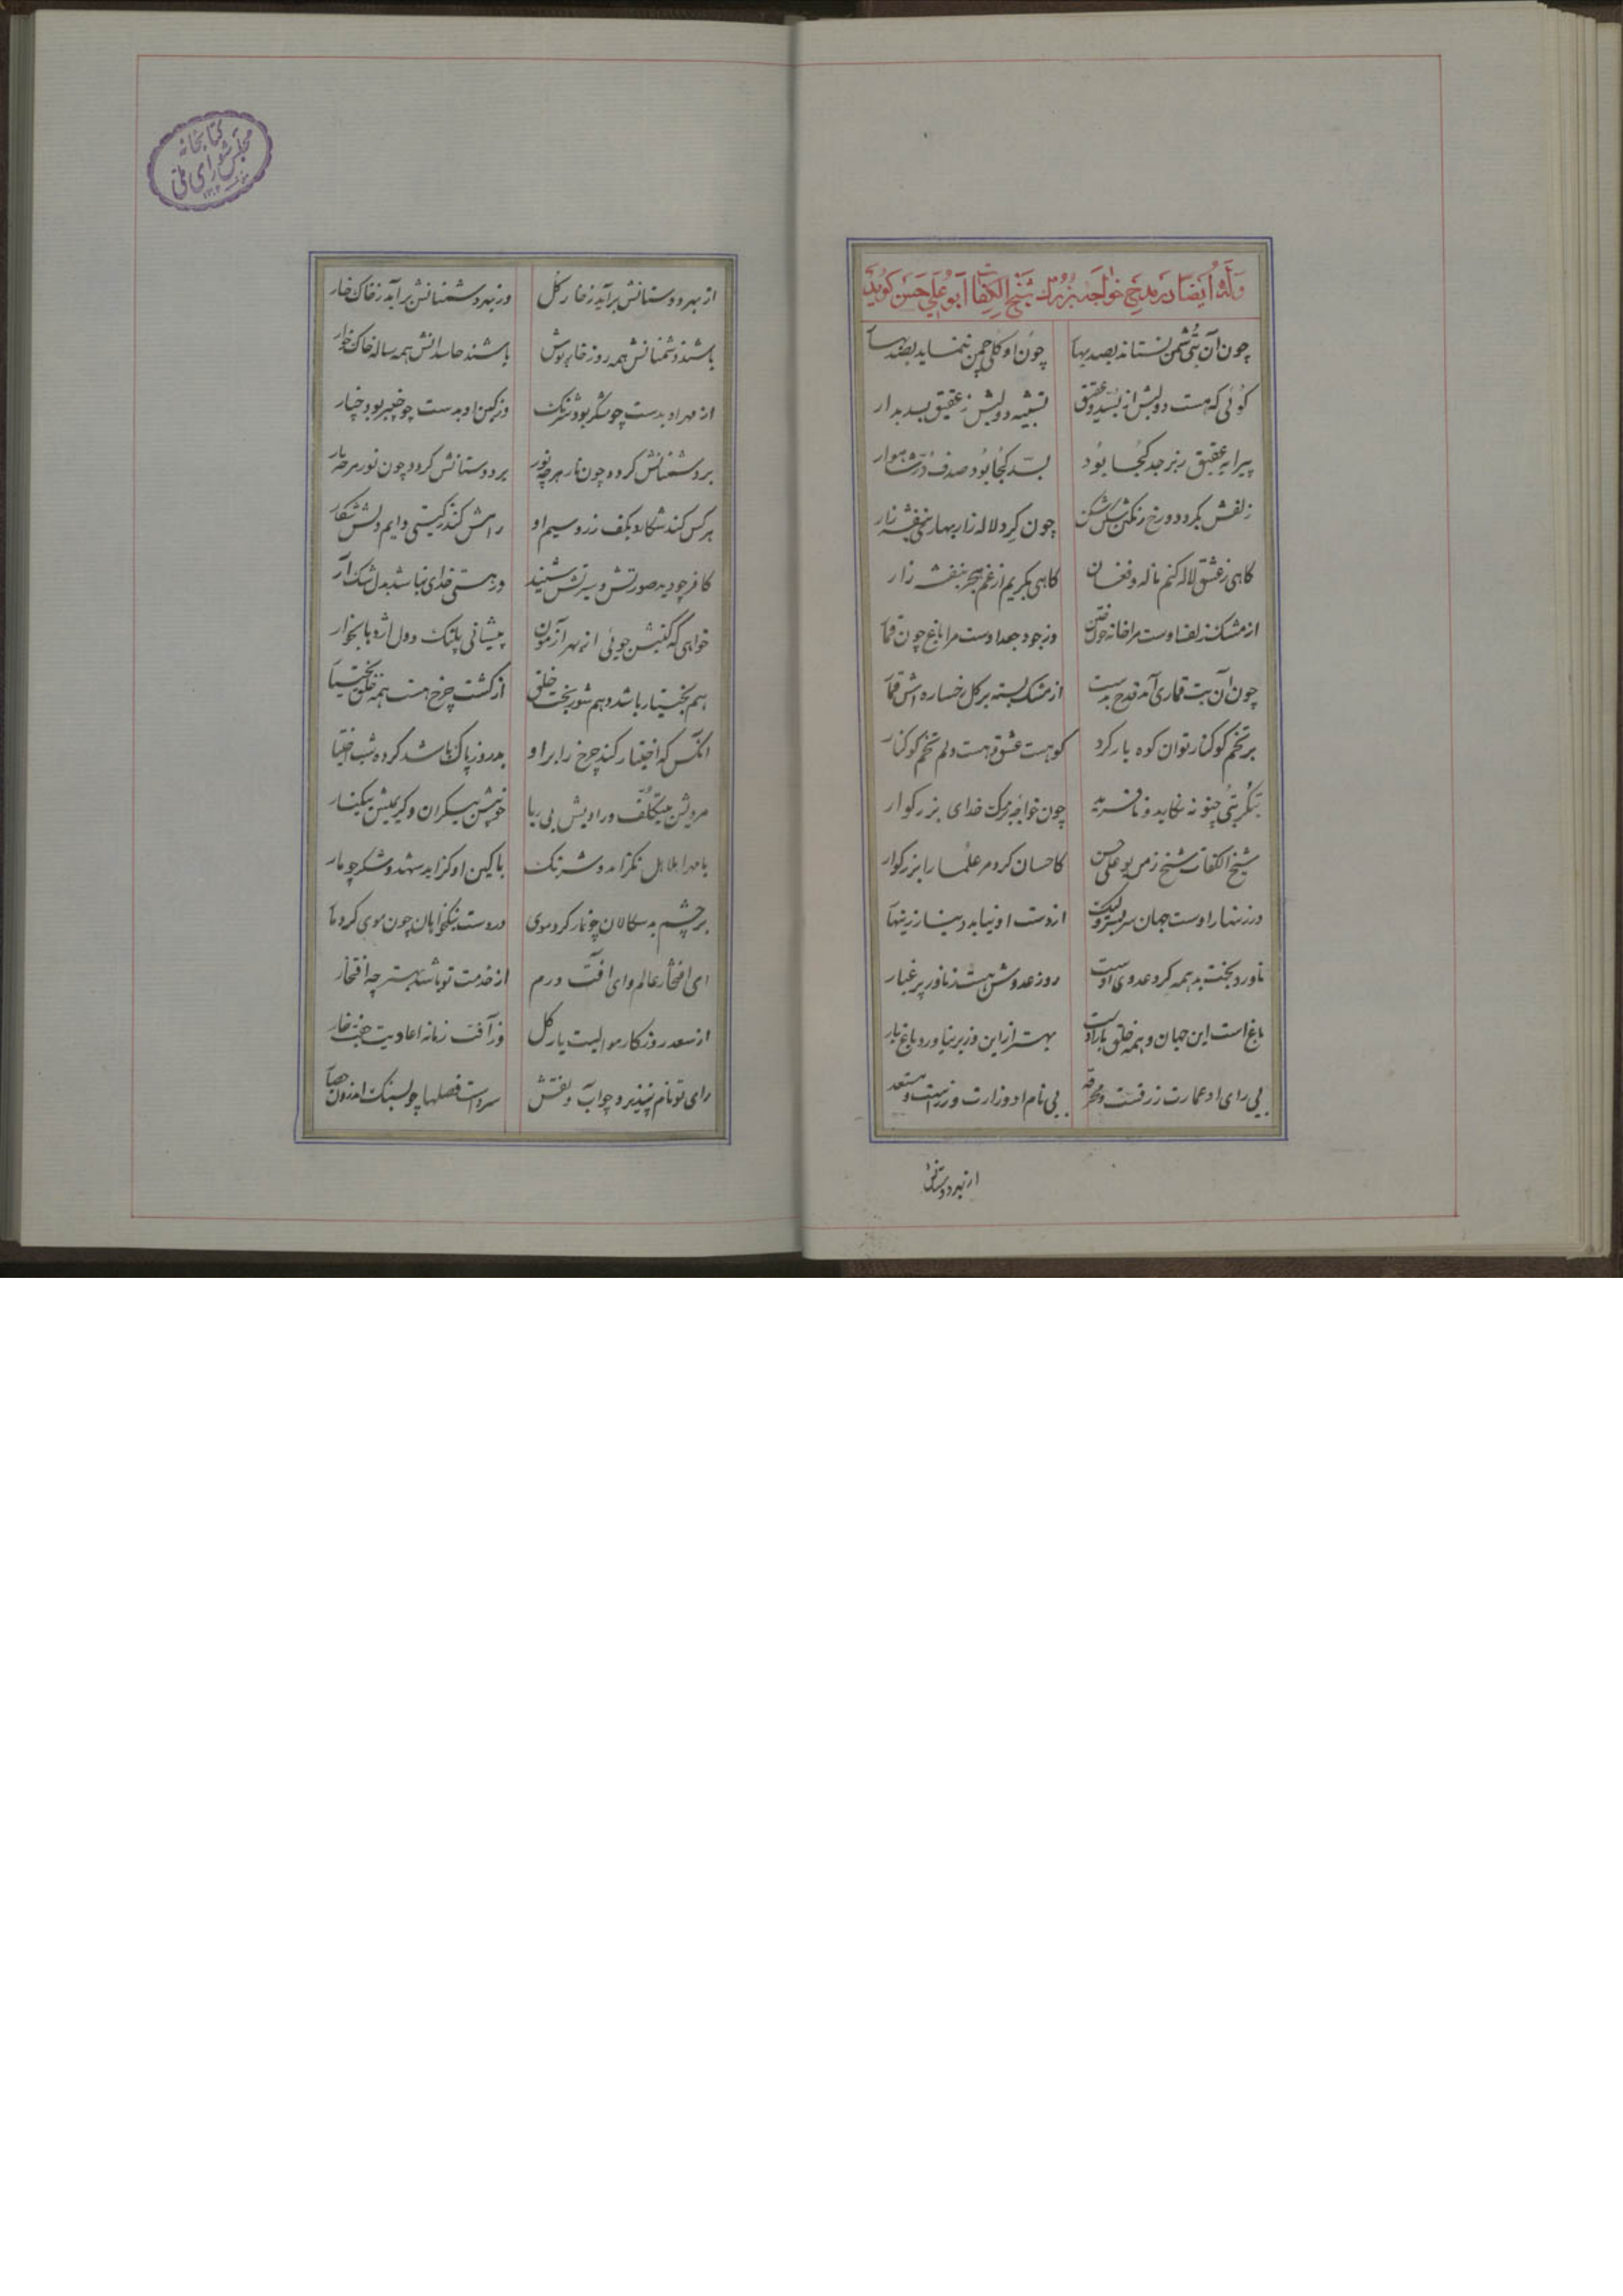 وله ایضا در مدح خواجه بزرک شیخ الکفات ابو علی حسن کوید
چون آن بتی شمن نستاند بصد بهار چون او کلی چمن ننماید بصد بهار
کوئی که هست دو لبش از بسد و عقیق تشبیه دو لبش ز عقیق بسد بدار
پیرایه عقیق زبرجد کجا بود بسد کجا بود صدف در شاهوار
زلفش بکرد دو رخ رنکین شکن شکن چون کرد لاله زار بهاری بنفشه زار
کاهی ز عشق لاله کنم ناله و فغان کاهی بکریم از غم هجر بنفشه زار
از مشک زلف اوست مرا خانه چون ختن وز جود جعد اوست مرا باغ چون قمار
چون آن بت قماری آمد قدح بدست از مشک بسته بر کل رخساره اش قمار
بر تخم کوکنار توان کوه بار کرد کوهست عشق و هست دلم تخم کوکنار
بتکر بتی چنو نه نکارید و نافرید چون خواجه بزرک خدای بزرکوار
شیخ الکفات شیخ زمن بو علی حسن کاحسان کرد مر علما را بزرکوار
در زینهار اوست جهان سربسر ولیک از دست او نیابد دینار زینهار
ناورد بخت بد همه کرد عدوی اوست روز عدوش هست ز ناورد پر غبار
باغ است این جهان و همه خلق بار اوست بهتر از این وزیر نیاورد باغ بار
بی رای او عمارت زرقست و مخرقه بی نام او وزارت وزرست و مستعد
از بهر دوستانش
از بهر دوستانش برآید ز خار کل وز بهر دشمنانش برآید ز خاک خار
باشند دشمنانش همه روز خار پوش باشند حاسدانش همه ساله خاک خوار
از مهر او بدست چو شکر بود شرنک وز کین او بدست چو خنجر بود چنار
بر دشمنانش کردد چون نار هر چه نور بر دوستانش کردد چون نور هر چه نار
هر کس کند شکار بکف زر و سیم او رامش کند کیتی و ایم دلش شکار
کافر چو دید صورتش و سیرتش شنید در هستی خدای نباشد بدل شک آر
خواهی که کینش جوئی از بهر آزمون پیشانی پلنک و دل اژدها بخار
هم بختیار باشد و هم شور بخت خلق از کشت چرخ هست همه خلق بختیار
آنکس که اختیار کند چرخ را بر او بد روز پاک باشد کرده شب اختیار
مردیش بیتکلف و رادیش بی ریا خوبیش بیکران و کریمیش بیکنار
با مهر او هلاهل نکزاید و شرنک با کین او کزاید شهد و شکر چو مار
بر چشم بد سکالان چو نمار کرد موی در دست نیکخواهان چون موی کرد مار
ای افتخار عالم و ای آفت درم از خدمت تو باشد بهتر چه افتخار
از سعد روزکار موالیت یار کل وز آفت زمانه اعادیت جفت خار
رای تو نام نپذیرد چو آب و نقش سردات فصلها چو بسنک اندرون حصار
کتابخانه مجلس شورای ملی